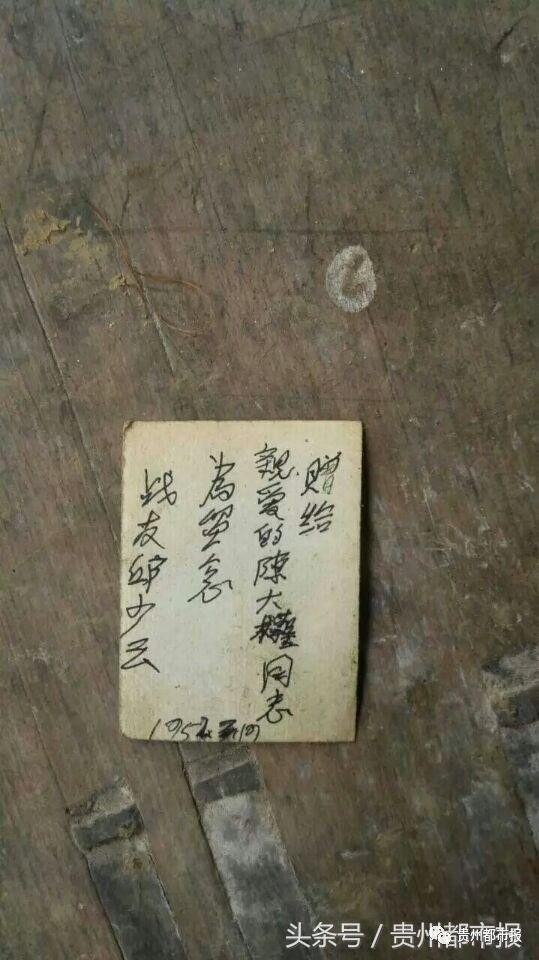 赠给
亲爱的陈大权同志
为留念
战友邱少云
1952
头条号／贵州都市报
贵州都市报